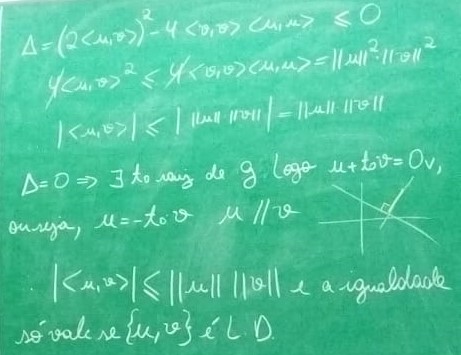 Δ=(2<u,v>)² - 4 <v,v> <u,u> ≤ 0
4<u,v>² ≤ 4<v,v><u,u> = ||u||²·||v||²
|<u,v>| ≤ | ||u|| ||v|| | = ||u|| ||v||
Δ=0 ⇒ ∃ t₀ raiz de g. Logo u+t₀v=0v,
ou seja, u=-t₀v u // v
. |<u,v>| ≤ ||u|| ||v|| e a igualdade
só vale se {u,v} é L.D.